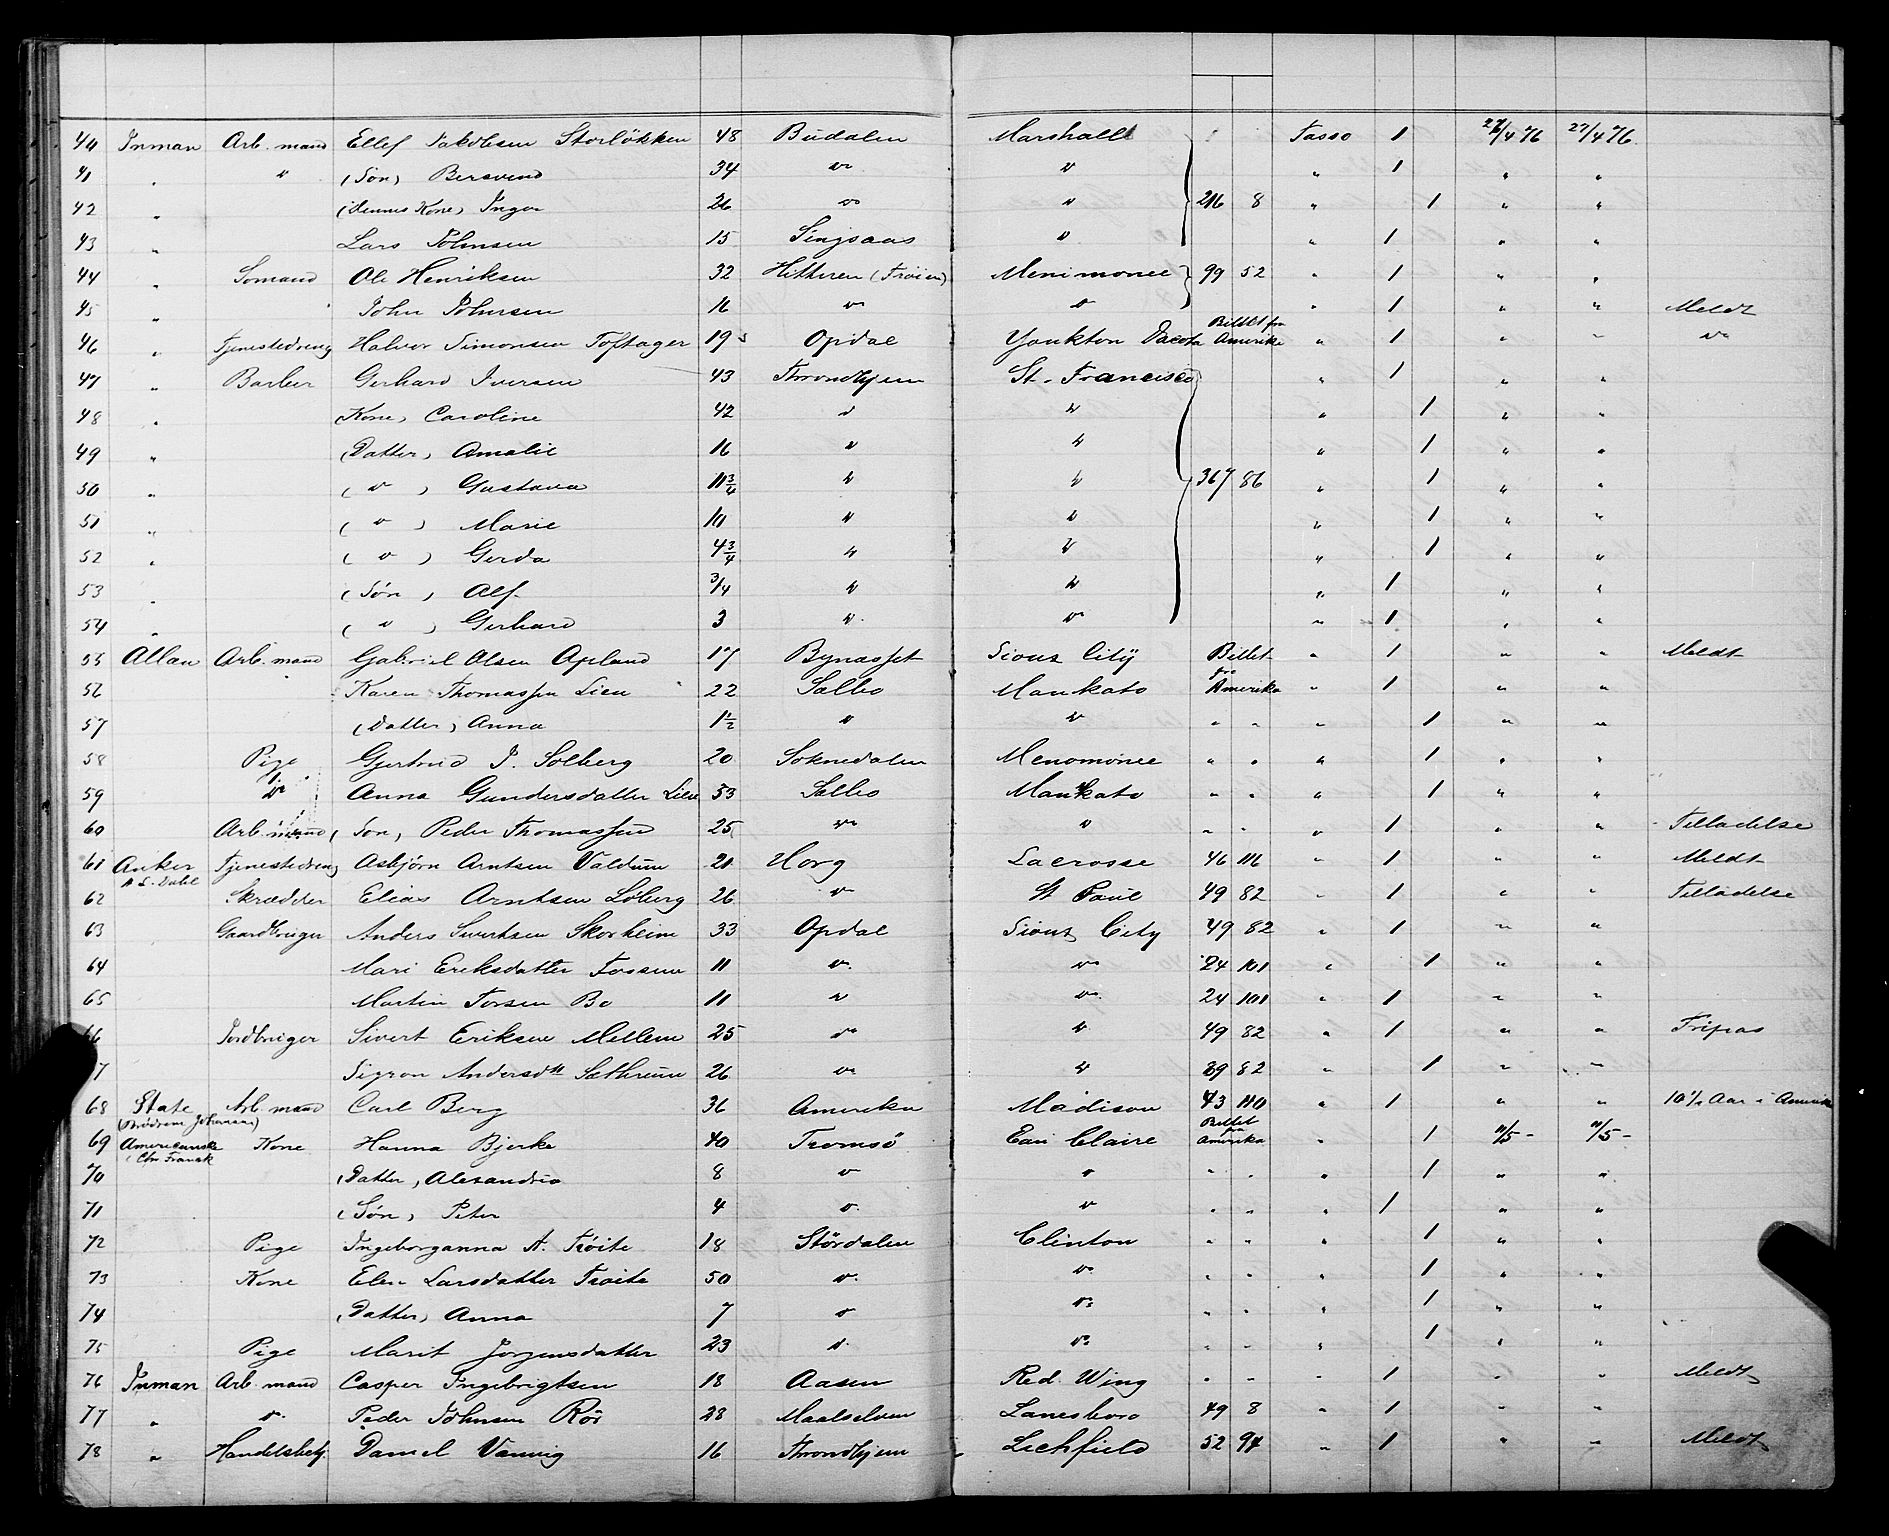 40 Inman Arb. mand Ellef Jakobsen Storløkken 48 Budalen Marshall Tasso 1 27/4 76 27/4 76.
41 " " (Søn) Bersvend 34 " " " 1 " "
42 " (dennes Kone) Inger 26 " " 216 8 " 1 " "
43 " Lars Johnsen 15 Singsaas " " 1 " "
44 " Sømand Ole Henriksen 32 Hitteren (Frøien) Menimonee 99 52 " 1 " "
45 " John Johnsen 16 " " " 1 " " Meldt
46 " Tjenestedreng Halvor Simonsen Toftager 19 Opdal Yankton Dacota Billet fra Amerika " 1 " " "
47 " Barber Gerhard Iversen 43 Throndhjem St. Francisco " 1 " "
48 " (Kone) Caroline 42 " " " 1 " "
49 " (Datter) Amalie 16 " " " 1 " "
50 " ( " ) Gustava 11 3/4 " " 367 86 " 1 " "
51 " ( " ) Marie 10 " " " 1 " "
52 " ( " ) Gerda 4 3/4 " " " 1 " "
53 " (Søn) Alf 3/4 " " " 1 " "
54 " ( " ) Gerhard 3 " " " 1 " "
55 Allan Arb. mand Gabriel Olsen Apland 17 Bynæsset Sioux City Billet fra Amerika " 1 " " Meldt
56 Karen Thomassen Lien 22 Sælbo Mankato " 1 " "
57 (Datter) Anna 1 1/2 " " " " " 1 " "
58 Pige Gjertrud J. Solberg 20 Soknedalen Menomonee " " " 1 " "
59 " Anna Gundersdatter Lien 53 Sælbo Mankato " " " 1 " "
60 Arb. mand (Søn) Peder Thomassen 25 " " " " " 1 " " Tilladelse
61 Anker Tjenestedreng Asbjørn Arntsen Valdum 21 Horg Lacrosse 46 116 " 1 " " Meldt
62 Skrædder Elias Arntsen Løberg 26 " St Paul 49 82 " 1 " " Tilladelse
63 Gaardbruger Anders Sivertsen Skorheim 33 Opdal Sioux City 49 82 " 1 " "
64 Mari Eriksdatter Fossum 11 " " 24 101 " 1 " "
65 Martin Torsen Bo 11 " " 24 101 " 1 " "
66 Jordbruger Sivert Eriksen Mellem 25 " " 49 82 " 1 " " Fripas
7 Sigron Andersdtt Sæthrum 26 " " 39 82 " 1 " "
68 State Arb. mand Carl Berg 36 Amerika Madison 43 110 " 1 " " 10 1/2 Aar i Amerik
(Brødrene Johansen)
69 Americanske Kone Hanna Bjerke 40 Tromsø Eau Claire Billet fra Amerika " 1 11/5 - 11/5 -
(Chr Franck
70 (Datter) Alexandria 8 " " " " " 1 " "
71 (Søn) Peter 4 " " " " " 1 " "
72 Pige Ingeborganna A. Trøite 18 Størdalen Clinton " " " 1 " "
73 Kone Elen Larsdatter Trøite 50 " " " " " 1 " "
74 (Datter) Anna 7 " " " " " 1 " "
75 Pige Marit Jorgensdatter 23 " " " 1 " "
76 Inman Arb. mand Casper Ingebrigtsen 18 Aasen Red. Wing " " " 1 " " Meldt
77 " " Peder Johnsen Rös 28 Maalselven Lanesboro 49 8 " 1 " "
78 " Handelsbetj. Daniel Vennig 16 Throndhjem Lichfield 52 94 " 1 " " Meldt